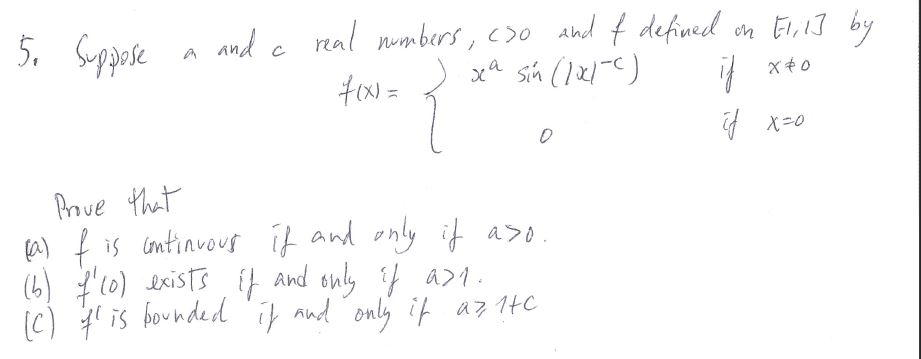 5. Suppose a and c real numbers, c>0 and f defined on [-1,1] by
f(x) = { x^a sin (|x|^-c) if x≠0
0 if x=0
Prove that
(a) f is continuous if and only if a>0.
(b) f'(0) exists if and only if a>1.
(c) f' is bounded if and only if a≥1+c